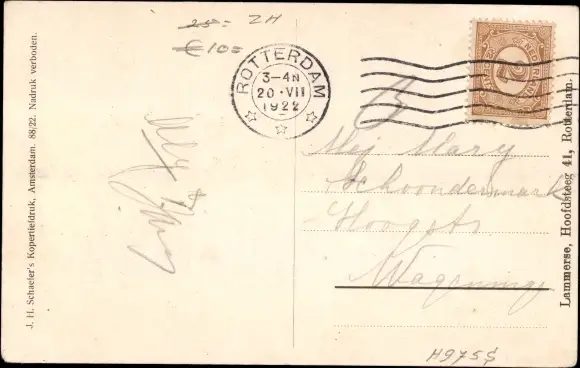 25= ZH
€ 10=
ROTTERDAM
3-4 N
20 · VII
1922
J. H. Schaefer's Kopertiefdruk, Amsterdam. 88/22. Nadruk verboden.
Mej Mary
Schoondermark
Hoogstr
Wageningen
Lammerse, Hoofdsteeg 41, Rotterdam.
H975$